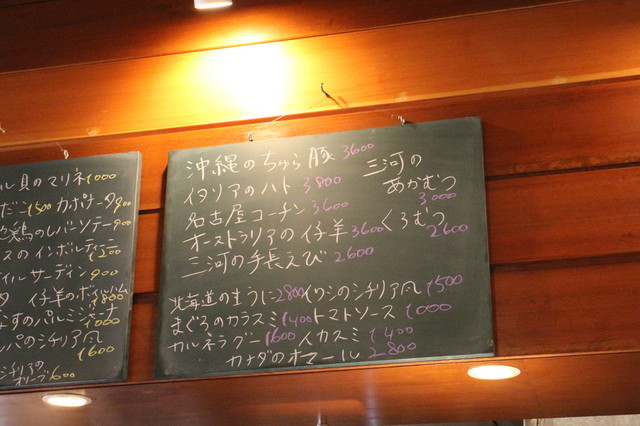 貝のマリネ 1000
1500 カポナータ 900
鶏のレバーソテー 900
のインボルティーニ 1200
オイルサーディン 900
仔羊のボイルハム 1800
なすのパルミジャーナ 1000
のシチリア風 1600
シチリアのオリーブ 600
沖縄のちゅら豚 3600
イタリアのハト 3800
名古屋コーチン 3600
オーストラリアの仔羊 3600
三河の手長えび 2600
三河の
あかむつ
3000
くろむつ
2600
北海道の生うに 2800 イワシのシチリア風 1500
まぐろのカラスミ 1400 トマトソース 1000
カルネラグー 1600 イカスミ 1400
カナダのオマール 2800